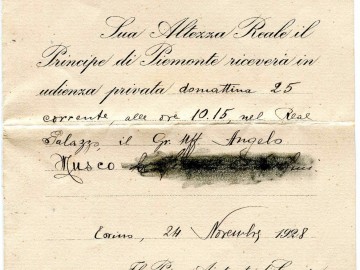 Sua Altezza Reale il
Principe di Piemonte riceverà in
udienza privata domattina 25
corrente, alle ore 10.15, nel Real
Palazzo, il Gr. Uff. Angelo
Musco
Torino, 24 Novembre 1928